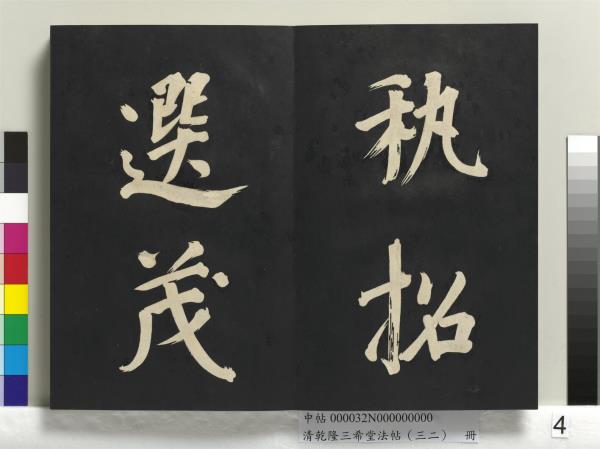 秇招
選茂
中帖 000032N000000000
清乾隆三希堂法帖（三二） 冊
4